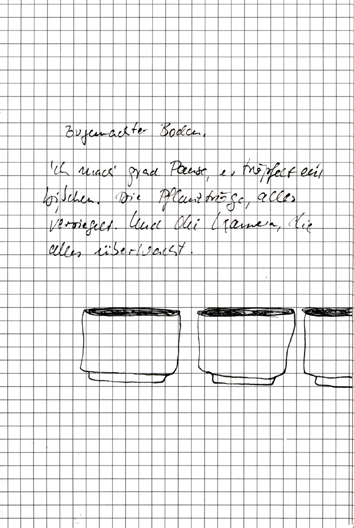 Zugemachter Boden.
Ich mach' grad Pause, es tröpfelt ein
bißchen. Die Pflanztröge, alles
versiegelt. Und die Kamera, die
alles überwacht.